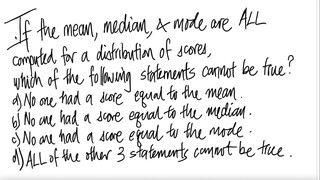 If the mean, median, & mode are ALL
computed for a distribution of scores,
which of the following statements cannot be true?
a) No one had a score equal to the mean.
b) No one had a score equal to the median.
c) No one had a score equal to the mode.
d) ALL of the other 3 statements cannot be true.